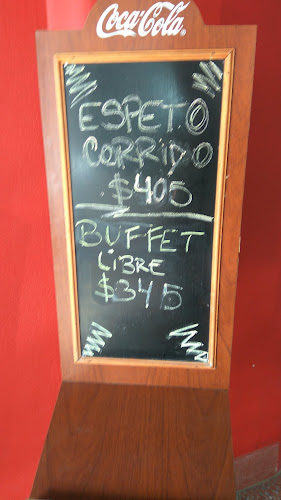 Coca-Cola
ESPETO
CORRIDO
$405
BUFFET
LiBRE
$345